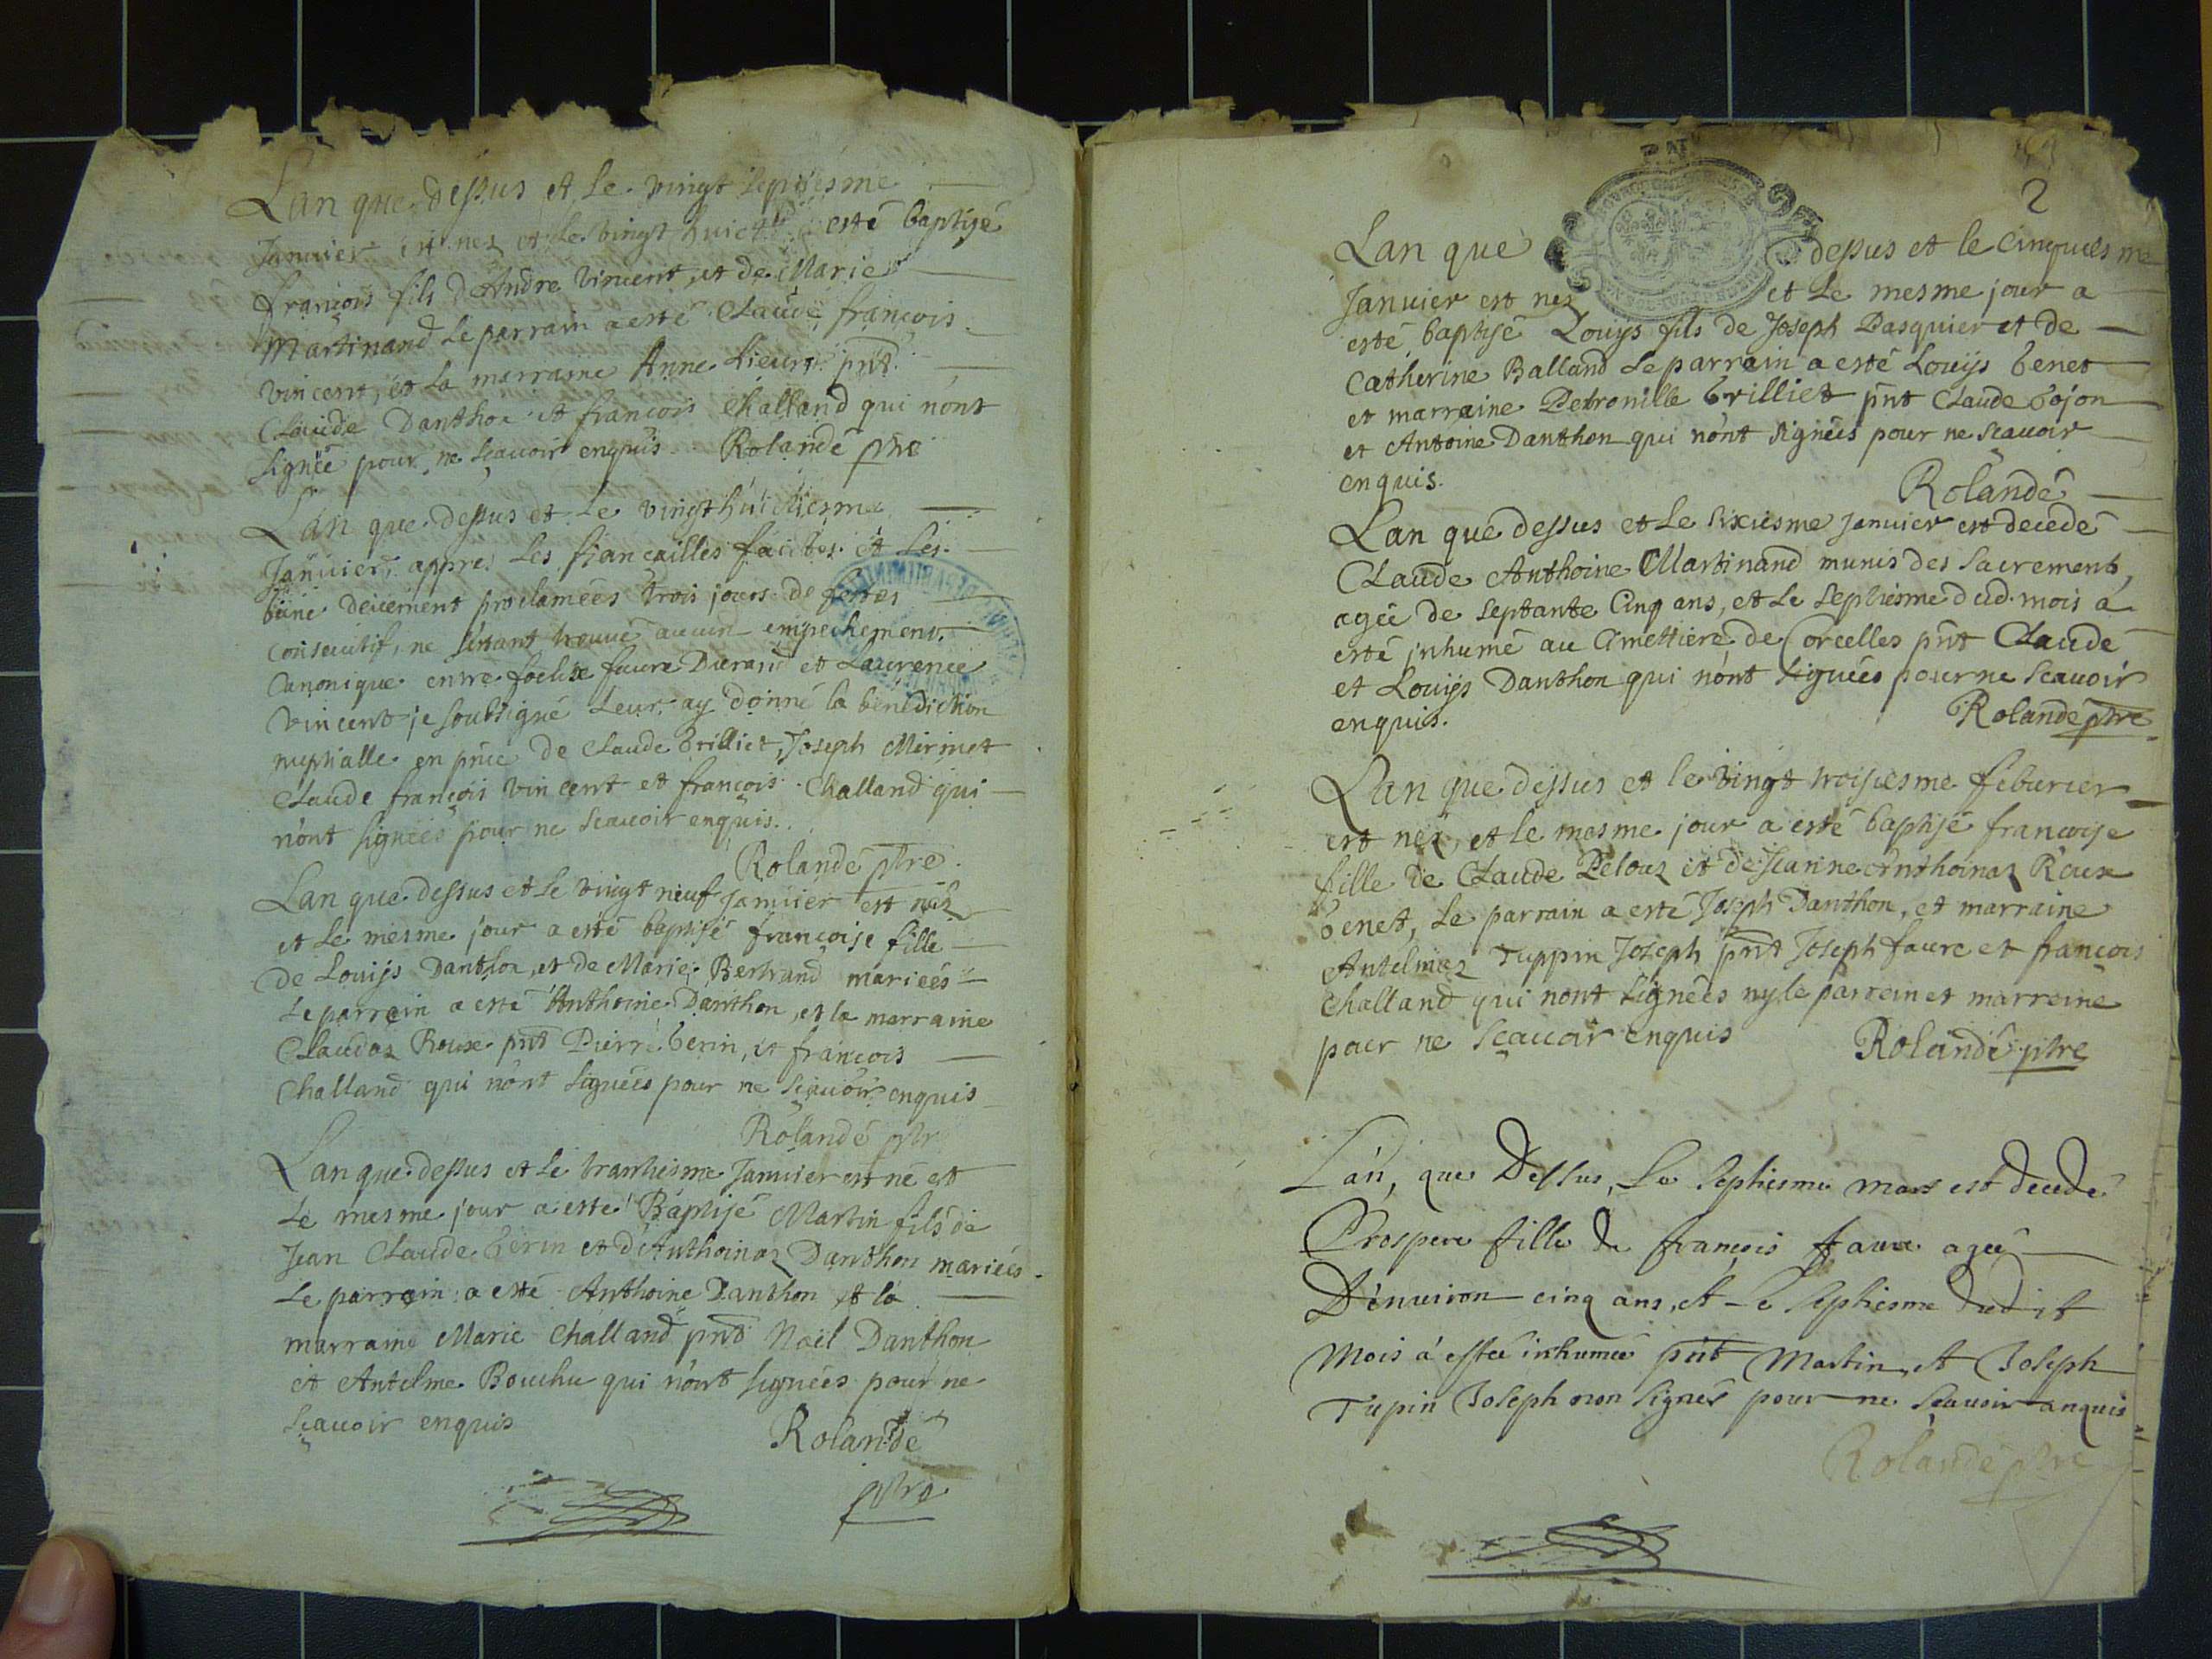 Lan que dessus et le vingt septiesme
Janvier est nez et le vingt huict esté baptisé
françois fils d'Andre vincent, et de Marie
Martinand le parrain a esté Claude françois
vincent, et la marraine Anne pnt
Claude Danthon et francois Challand qui nont
signée pour ne scavoir enquis. Rolandé ptre
Lan que dessus et le vingt huictiesme
Janvier, appres les fiancailles faictes et les
deüement proclamées trois jours de festes
consecutif, ne trouvé aucun empechement
Canonique entre foelix faure Durand et Laurence
vincent je soubsigné leur ay donné la bénédiction
nuptialle en pnce de Claude brilliet, Joseph Mirmet
Claude françois vincent et françois Challand qui
n'ont signées pour ne scavoir enquis.
Rolandé ptre
Lan que dessus et le vingt neuf Janvier est néz
et le mesme jour a esté baptisé françoise fille
de Louijs Danthon, et de Marie Bertrand mariées
Le parrain a esté Anthoine Danthon, et la marraine
Claudaz Roux pnt Pierre berin, et francois
Challand qui nónt signées pour ne sçavoir enquis
Rolandé ptre
Lan que dessus et le trantiesme Janvier est né et
le mesme jour a esté Baptisé Martin fils de
Jean Claude berin et d'Anthoinaz Danthon mariées
Le parrain a esté Anthoine Danthon et la
marraine Marie Challand pnt Noël Danthon
et Antelme Bouchu qui nónt signées pour ne
sçavoir enquis
Rolandé
ptre
2
Lan que depus et le Cinquiesme
Janvier est nez et le mesme jour a
esté baptisé Louys fils de Joseph Pasquier et de
Catherine Balland le parrain a esté Louijs benet
et marraine Petronille brilliet pnt Claude bojon
et Antoine Danthon qui nónt signées pour ne scavoir
enquis.
Rolandé
Lan que dessus et le sixiesme Janvier est decedé
Claude Anthoine Martinand munis des sacrements,
agée de septante Cinq ans, et le septiesme dud. mois á
esté inhumé au Cimettiere de Corcelles pnt Claude
et Louijs Danthon qui nónt signées pour ne scavoir
enquis.
Rolandé ptre
Lan que dessus et le vingt troisiesme feburier
est néz, et le mesme jour a esté baptisé françoise
fille de Claude Pelouz et de Jeanne Anthoinaz Roux
benet, le parrain a esté Joseph Danthon, et marraine
Antelmaz Tuppin Joseph pnt Joseph faure et françois
Challand qui nont signées ny le parrain et marraine
pour ne sçavoir enquis
Rolandé ptre
L'an, que Dessus, Le septiesme mars est decedé
Prospere fille de françois faure agée
D'environ cinq ans, et le septiesme dudit
mois á estée inhumée pnt Martin, et Joseph
Tupin Joseph non signés pour ne scavoir anquis
Rolandé ptre